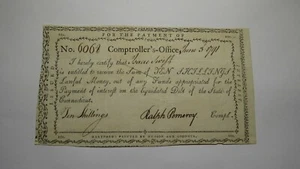 FOR THE PAYMENT OF
No. 6061 Comptroller's-Office, June 3 1791
I hereby certify that Isaac Swift
is entitled to receive the Sum of TEN SHILLINGS
Lawful Money, out of any Funds appropriated for the
Payment of Interest on the liquidated Debt of the State of
Connecticut.
Ten Shillings Ralph Pomeroy Compt.
HARTFORD: PRINTED BY HUDSON AND GOODWIN.